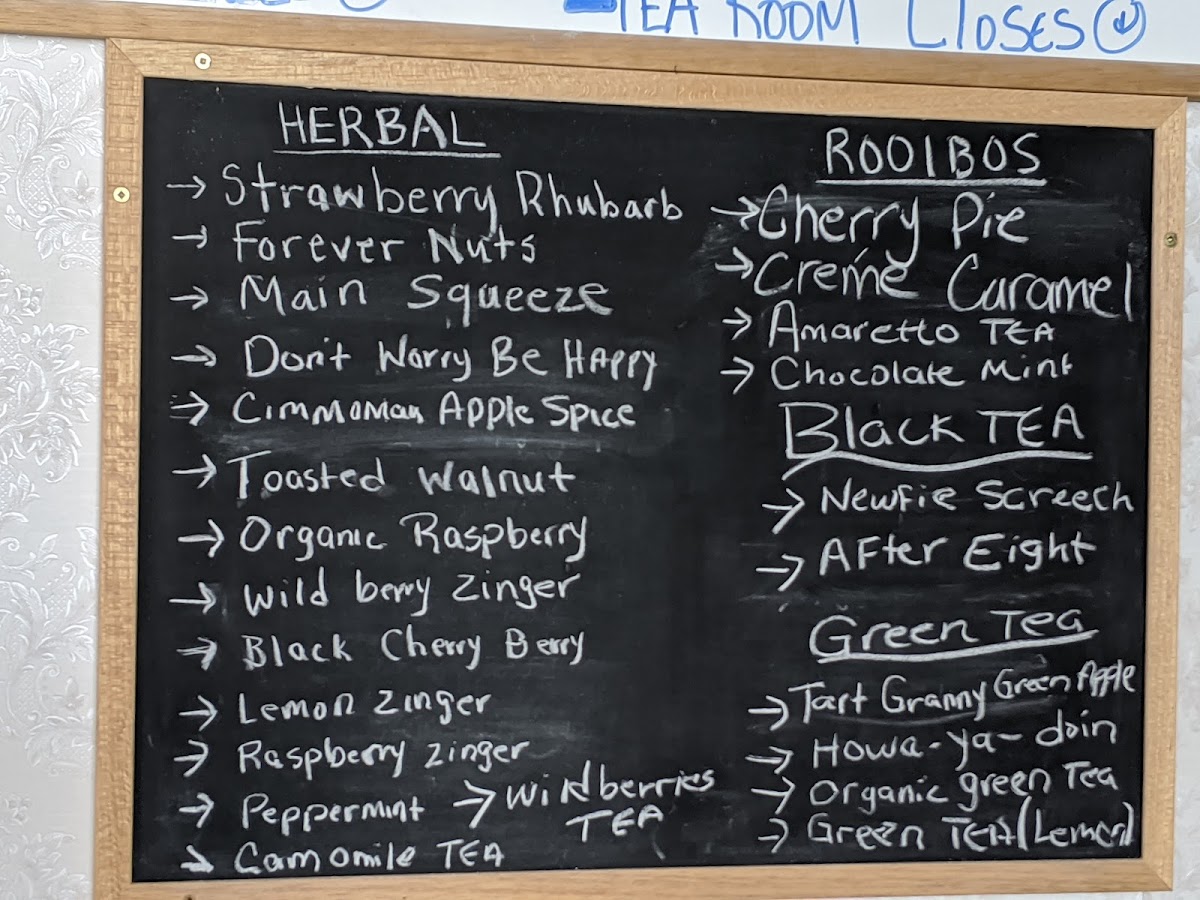 TEA ROOM CLOSES
HERBAL
→ Strawberry Rhubarb
→ Forever Nuts
→ Main Squeeze
→ Don't Worry Be HAPPY
→ Cimmoman Apple Spice
→ Toasted Walnut
→ Organic Raspberry
→ Wild berry Zinger
→ Black Cherry Berry
→ Lemon Zinger
→ Raspberry Zinger
→ Peppermint → Wildberries
TEA
→ Camomile TEA
ROOIBOS
→ Cherry Pie
→ Creme Caramel
→ Amaretto TEA
→ Chocolate Mint
Black TEA
→ Newfie Screech
→ AFter Eight
Green Tea
→ Tart Granny Green Apple
→ Howa-ya-doin
→ Organic green Tea
→ Green TEA (Lemon)